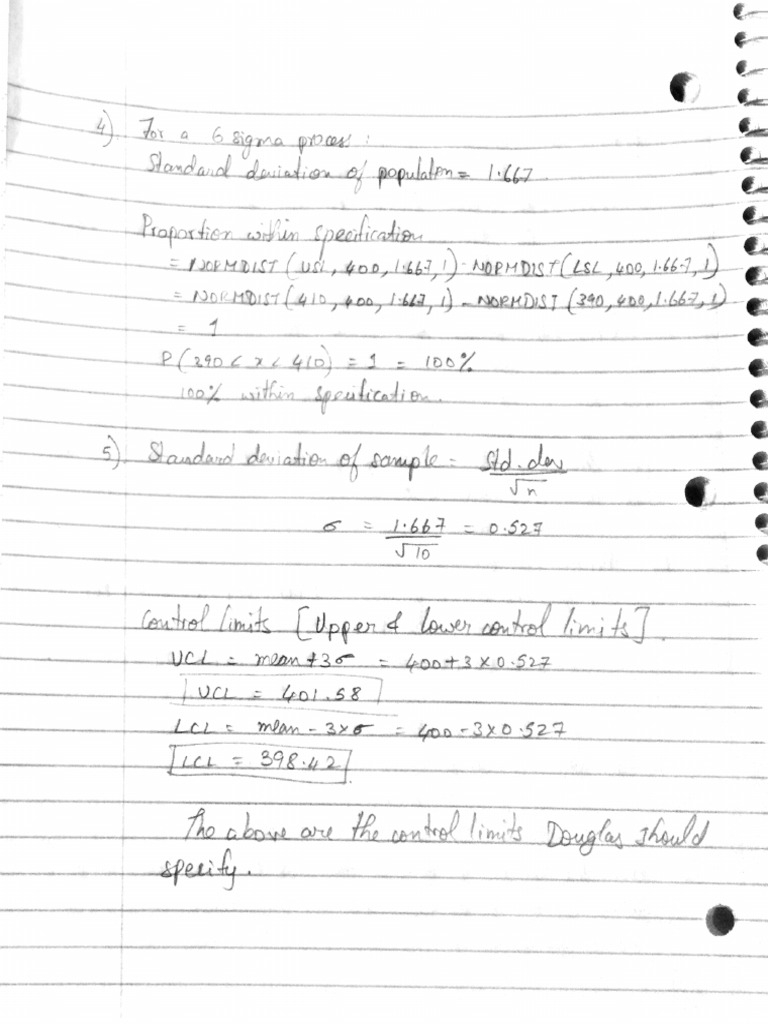 4) For a 6 sigma process:
Standard deviation of population = 1.667
Proportion within specification
= NORMDIST (USL, 400, 1.667, 1) - NORMDIST (LSL, 400, 1.667, 1)
= NORMDIST (410, 400, 1.667, 1) - NORMDIST (390, 400, 1.667, 1)
= 1
P(390 < x < 410) = 1 = 100%
100% within specification.
5) Standard deviation of sample = Std. dev
√n
σ = 1.667 = 0.527
√10
Control limits [Upper & lower control limits].
UCL = mean + 3σ = 400 + 3 x 0.527
UCL = 401.58
LCL = mean - 3 x σ = 400 - 3 x 0.527
LCL = 398.42
The above are the control limits Douglas should
specify.